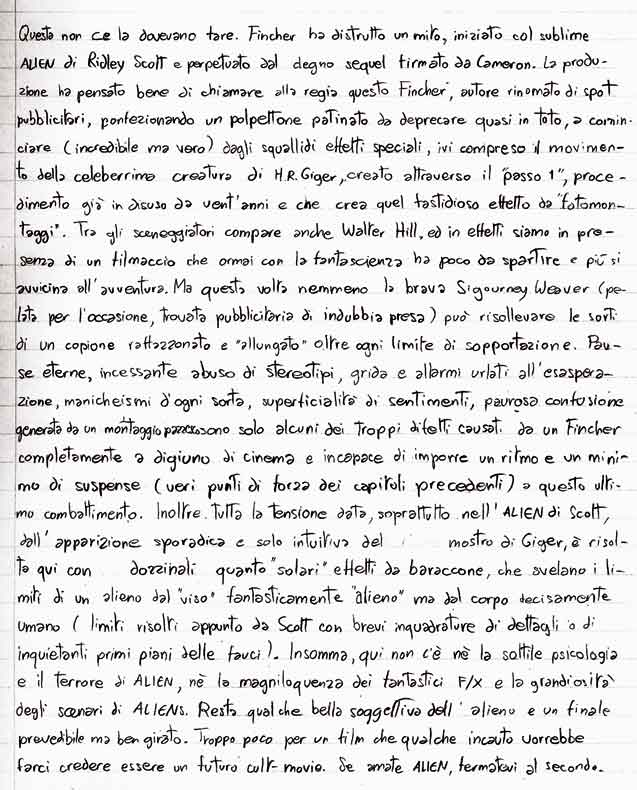 Questa non ce la dovevano fare. Fincher ha distrutto un mito, iniziato col sublime
ALIEN di Ridley Scott e perpetuato dal degno sequel firmato da Cameron. La produ-
zione ha pensato bene di chiamare alla regia questo Fincher, autore rinomato di spot
pubblicitari, confezionando un polpettone patinato da deprecare quasi in toto, a comin-
ciare (incredibile ma vero) dagli squallidi effetti speciali, ivi compreso il movimen-
to della celeberrima creatura di H.R. Giger, creato attraverso il "passo 1", proce-
dimento già in disuso da vent'anni e che crea quel fastidioso effetto da "fotomon-
taggi". Tra gli sceneggiatori compare anche Walter Hill, ed in effetti siamo in pre-
senza di un filmaccio che ormai con la fantascienza ha poco da spartire e più si
avvicina all'avventura. Ma questa volta nemmeno la brava Sigourney Weaver (pe-
lata per l'occasione, trovata pubblicitaria di indubbia presa) può risollevare le sorti
di un copione raffazzonato e "allungato" oltre ogni limite di sopportazione. Pau-
se eterne, incessante abuso di stereotipi, grida e allarmi urlati all'esaspera-
zione, manicheismi d'ogni sorta, superficialità di sentimenti, paurosa confusione
generata da un montaggio sono solo alcuni dei troppi difetti causati da un Fincher
completamente a digiuno di cinema e incapace di imporre un ritmo e un mini-
mo di suspense (veri punti di forza dei capitoli precedenti) a questo ulti-
mo combattimento. Inoltre tutta la tensione data, soprattutto nell'ALIEN di Scott,
dall'apparizione sporadica e solo intuitiva del mostro di Giger, è risol-
ta qui con dozzinali quanto "solari" effetti da baraccone, che svelano i li-
miti di un alieno dal "viso" fantasticamente "alieno" ma dal corpo decisamente
umano (limiti risolti appunto da Scott con brevi inquadrature di dettagli o di
inquietanti primi piani delle fauci). Insomma, qui non c'è nè la sottile psicologia
e il terrore di ALIEN, nè la magniloquenza dei fantastici F/X e la grandiosità
degli scenari di ALIENS. Resta qualche bella soggettiva dell'alieno e un finale
prevedibile ma ben girato. Troppo poco per un film che qualche incauto vorrebbe
farci credere essere un futuro cult-movie. Se amate ALIEN, fermatevi al secondo.